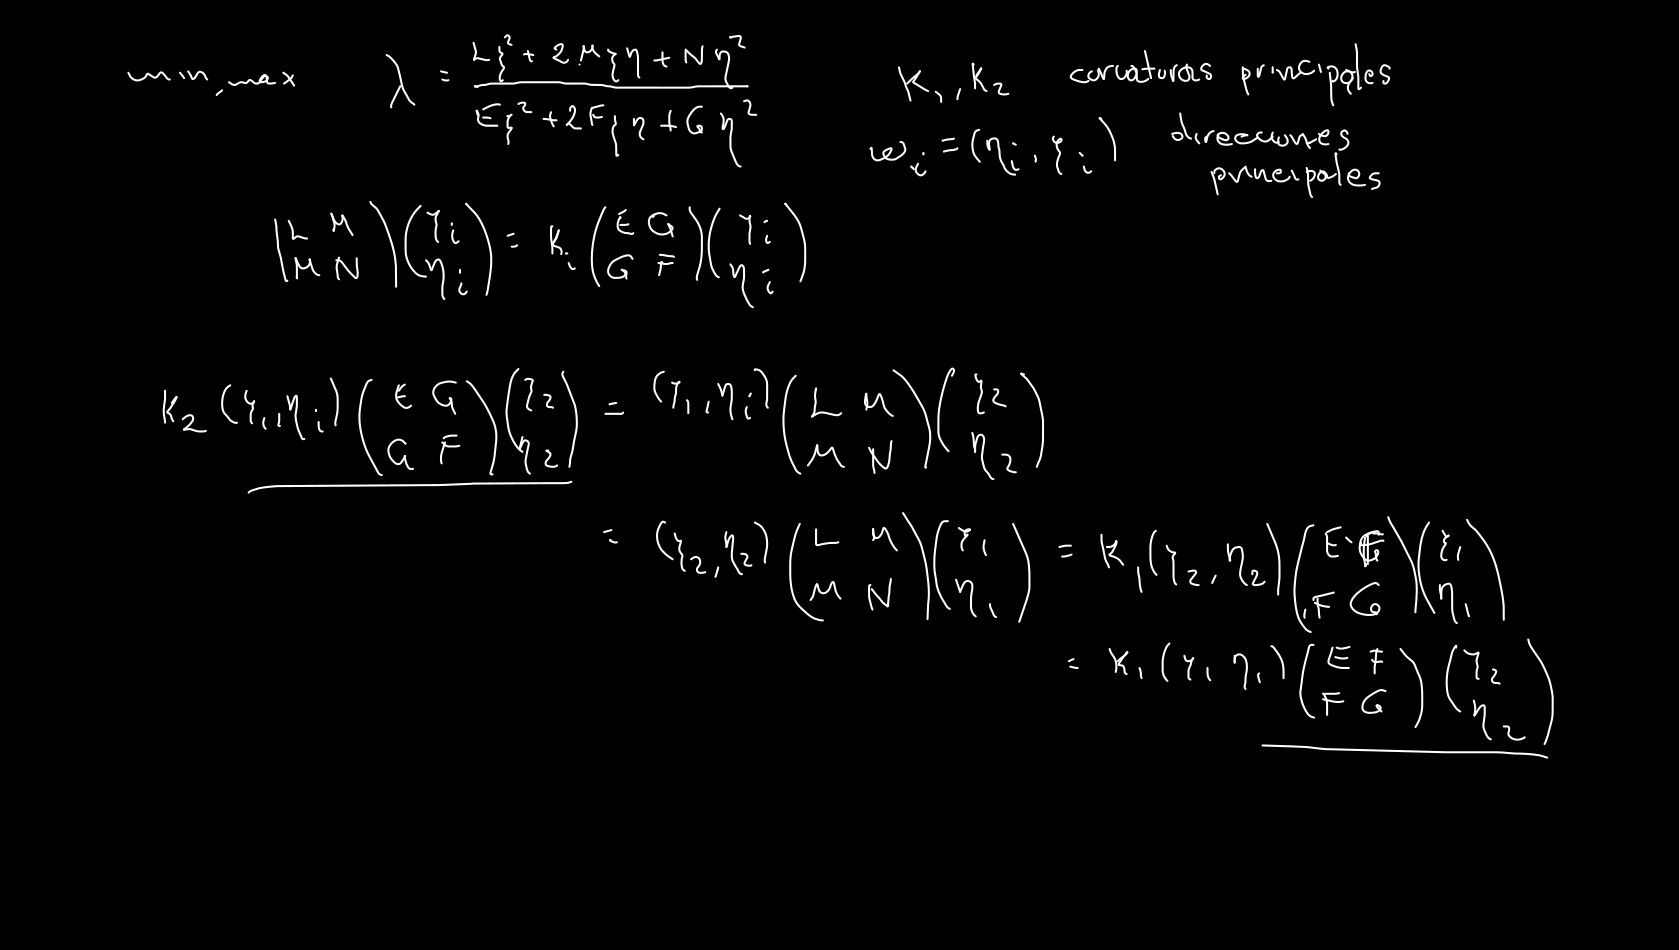 min, max λ = (Lξ² + 2Mξη + Nη²) / (Eξ² + 2Fξη + Gη²)
K₁, K₂ curvaturas principales
ω_i = (η_i, ξ_i) direcciones
principales
(L M; M N)(ξ_i; η_i) = K_i (E G; G F)(ξ_i; η_i)
K₂ (ξ₁, η_i)(E G; G F)(ξ₂; η₂) = (ξ₁, η_i)(L M; M N)(ξ₂; η₂)
= (ξ₂, η₂)(L M; M N)(ξ₁; η₁) = K₁ (ξ₂, η₂)(E F; F G)(ξ₁; η₁)
= K₁ (ξ₁ η₁)(E F; F G)(ξ₂; η₂)